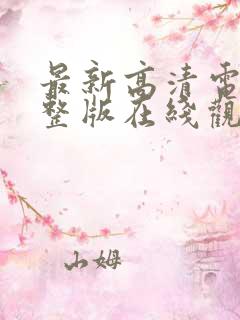 最新高清電
整版在綫觀
山姆